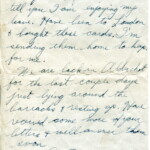 till you. I am enjoying my
leave. Have been to London
& bought these cards. I'm
sending them home to keep
for me.
We are back in Aldershot
for the last couple days
just lying around the
barracks & resting up. Have
received some more of your
letters & will answer them
soon